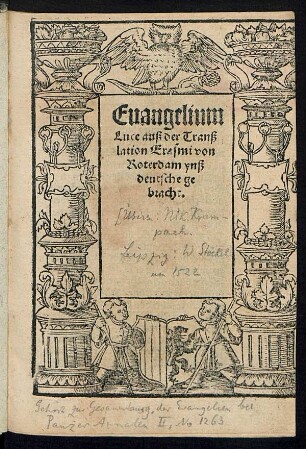 Euangelium
Luce auß der Tranß
lation Erasmi von
Roterdam ynß
deutsche ge
bracht.
[Übers.: Nik. Krum-
pach.
Leipzig: W. Stöckel
um 1522
Gehört zur Gesammtausg. der Evangelien bei
Panzer Annalen II, No 1263